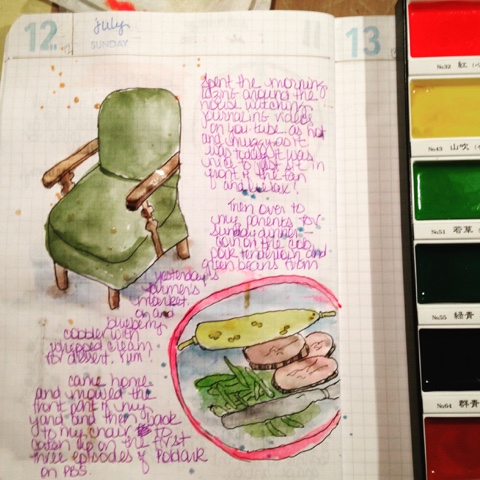 12
July
SUNDAY
11
13
Spent the morning
lazing around the
house watching
journaling videos
on you tube. as hot
and muggy as it
was today it was
nice to just sit in
front of the fan
and relax!
Then over to
my parents for
Sunday dinner -
corn on the cob,
pork tenderloin and
green beans from
yesterday's
farmer's
market.
oh and
blueberry
cobbler with
whipped cream
for dessert. yum!
came home
and mowed the
front part of my
yard and then back
to my chair to
catch up on the first
three episodes of Poldark
on PBS.
No32 紅
No43 山吹
No51 若草
No55 緑青
No64 群青